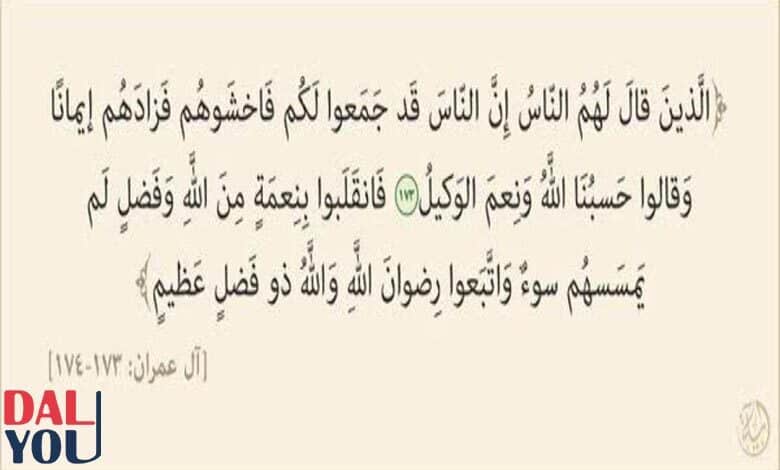 ﴿الَّذينَ قالَ لَهُمُ النّاسُ إِنَّ النّاسَ قَد جَمَعوا لَكُم فَاخشَوهُم فَزادَهُم إيمانًا
وَقالوا حَسبُنَا اللَّهُ وَنِعمَ الوَكيلُ ١٧٣ فَانقَلَبوا بِنِعمَةٍ مِنَ اللَّهِ وَفَضلٍ لَم
يَمسَسهُم سوءٌ وَاتَّبَعوا رِضوانَ اللَّهِ وَاللَّهُ ذو فَضلٍ عَظيمٍ﴾
[آل عمران: ١٧٣-١٧٤]
DAL
YOU